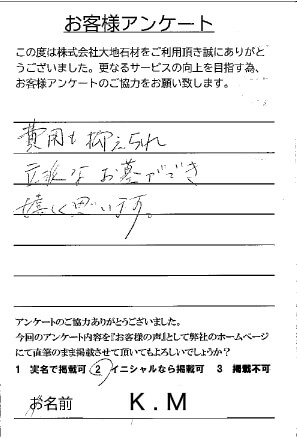 お客様アンケート
この度は株式会社大地石材をご利用頂き誠にありがと
うございました。更なるサービスの向上を目指す為、
お客様アンケートのご協力をお願い致します。
費用も抑えられ
立派なお墓ができ
嬉しく思います。
アンケートのご協力ありがとうございました。
今回のアンケート内容を『お客様の声』として弊社のホームページ
にて直筆のまま掲載させて頂いてもよろしいでしょうか?
1 実名で掲載可 2 イニシャルなら掲載可 3 掲載不可
お名前 K.M